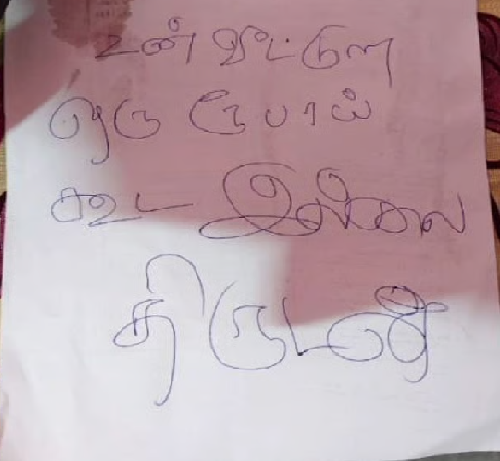 உன் வீட்டுல
ஒரு ரூபாய்
கூட இல்லை
திருடன்